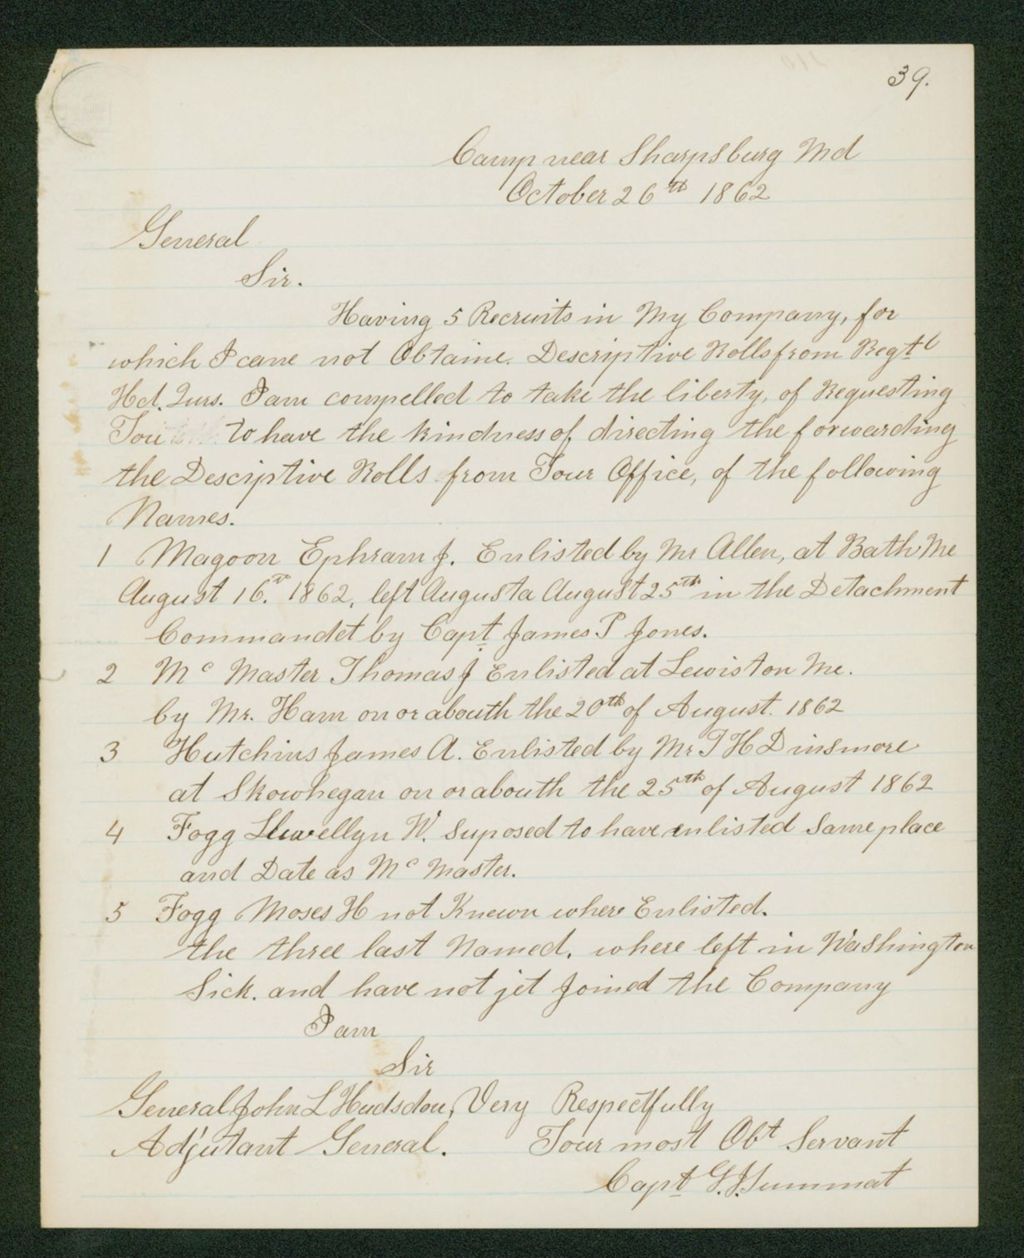 39.
Camp near Sharpsburg Md
October 26th 1862
General
Sir.
Having 5 Recruits in My Company, for
which I cane not Obtaine. Descriptive Rolls from Regtl
Hd. Qurs. I am compelled to take the liberty, of Requesting
You to have the kindness of directing the forwarding
the Desciptive Rolls from Your Office, of the following
Names.
1 Magoon Ephram J. Enlisted by Mr Allen, at Bath Me
August 16th 1862, left Augusta August 25th in the Detachment
Commandet by Capt James P Jones.
2 Mc Master Thomas J Enlisted at Lewiston Me.
by Mr. Ham on or abouth the 20th of August. 1862
3 Hutchins James A. Enlisted by Mr. T H Dinsmore
at Skowhegan on or abouth the 25th of August 1862
4 Fogg Llewellyn W. Suposed to have enlisted Same place
and Date as Mc Master.
5 Fogg Moses H not Knewn where Enlisted.
the three last Named, where left in Washington
Sick. and have not jet joined the Company
I am
Sir
General John L Hudsdon, Very Respectfully
Adjutant General. Your most Obt Servant
Capt